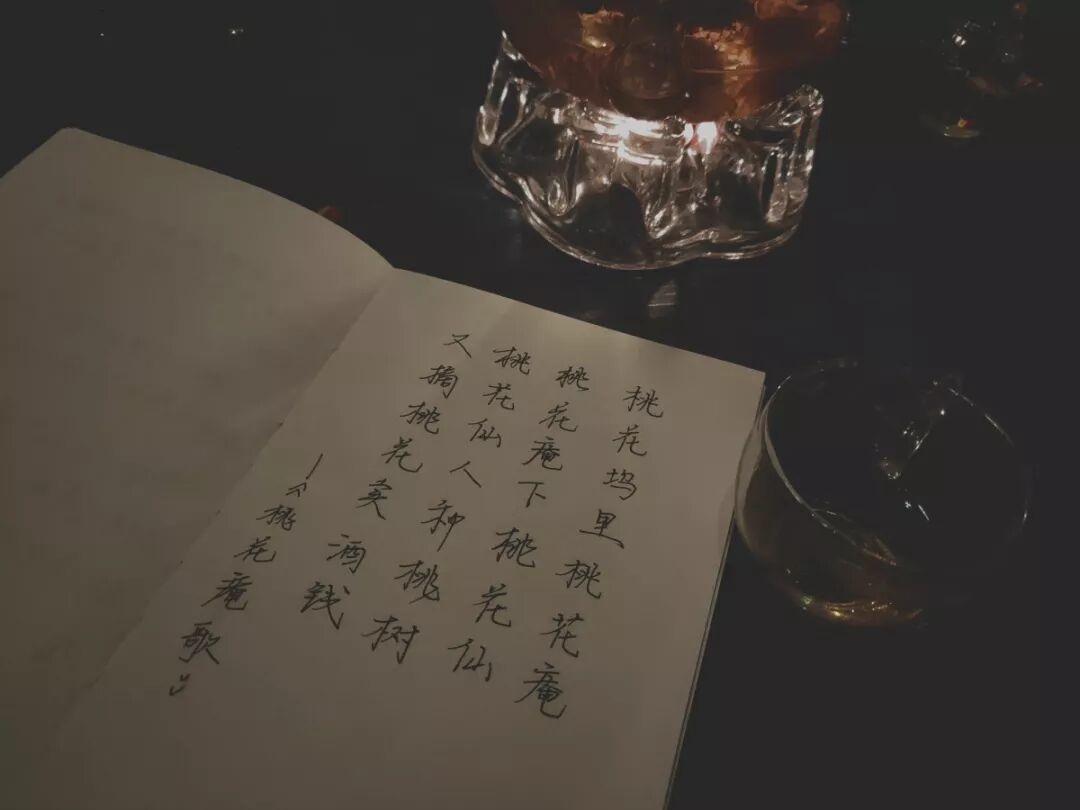 桃花坞里桃花庵
桃花庵下桃花仙
桃花仙人种桃树
又摘桃花卖酒钱
—《桃花庵歌》